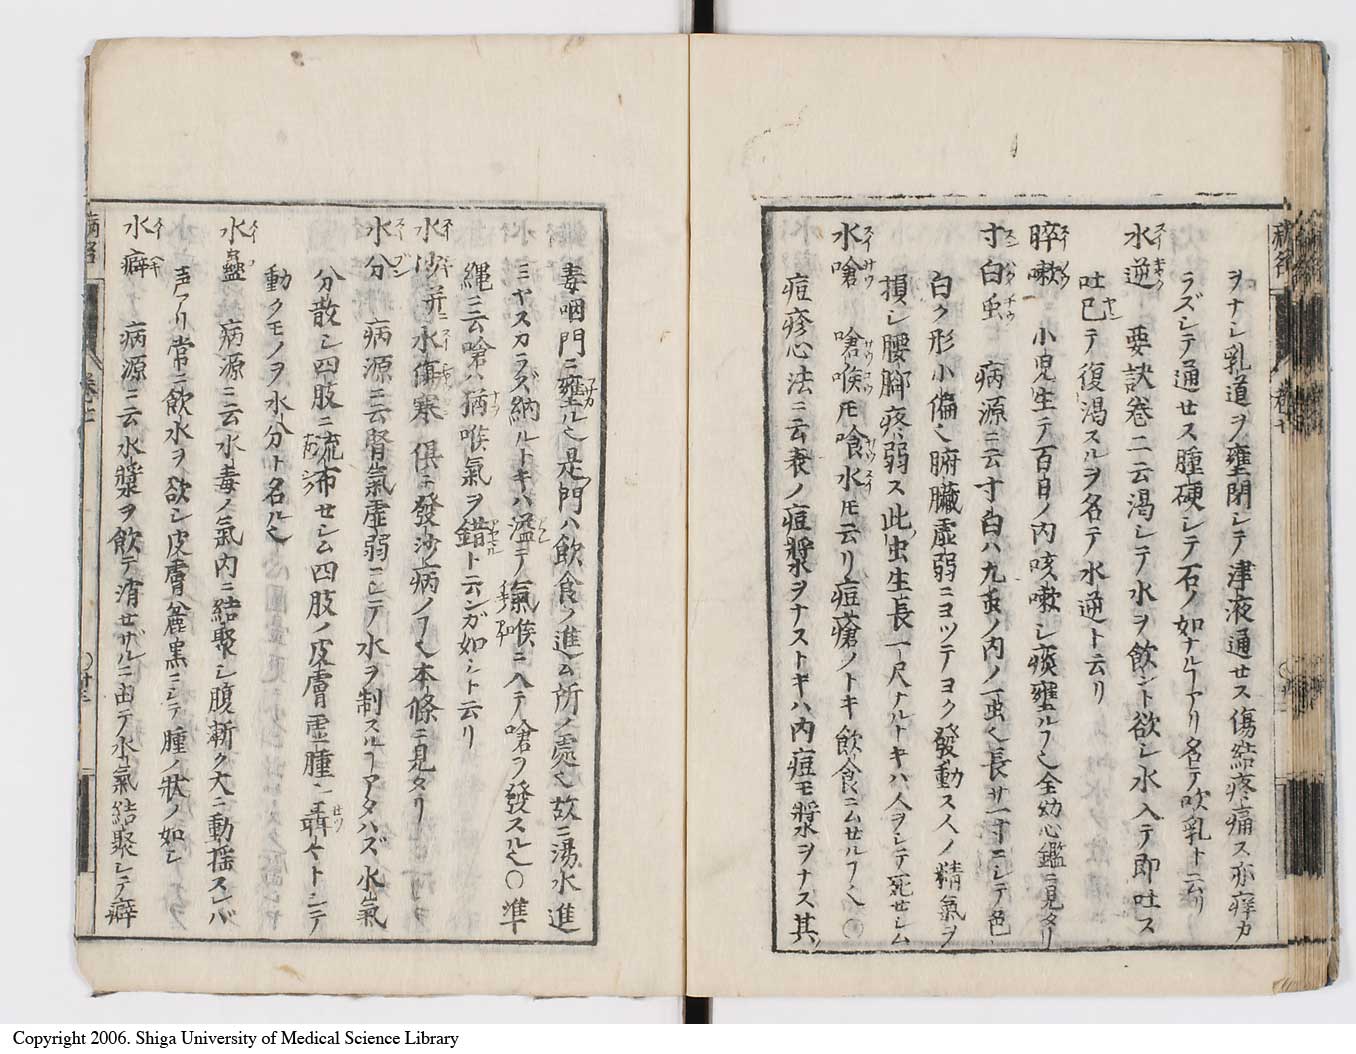 ヲナシ乳道ヲ壅閉シテ津液通セス傷結疼痛ス亦痒カ
ラズシテ通セス腫硬シテ石ノ如ナルヿアリ名テ吹乳ト云リ
水逆 要訣卷二云渇シテ水ヲ飲ント欲シ水入テ即吐ス
吐已テ復渇スルヲ名テ水逆ト云リ
啐嗽 小児生テ百日ノ内咳嗽シ痰壅ルヿ也全幼心鑑ニ見タリ
寸白虫 病源ニ云寸白ハ九虫ノ内ノ一虫也長サ一寸ニシテ色
白ク形小偏也腑臟虚弱ニヨツテヨク發動ス人ノ精氣ヲ
損シ腰脚疼弱ス此虫生長一尺ナルトキハ人ヲシテ死セシム
水嗆 嗆喉𪜈嗆水𪜈云リ痘瘡ノトキ飲食ニムセルヿ也○
痘疹心法ニ云表ノ痘漿ヲナストキハ内痘モ漿ヲナス其
毒咽門ニ壅ル也是門ハ飲食ノ進ム所ノ處也故ニ湯水進
ミヤスカラズ納ルトキハ溢テ氣喉ニ入テ嗆ヲ發スル也○準
縄ニ云嗆ハ猶喉氣ヲ錯ト云ンガ如シト云リ
水沙并ニ水傷寒 倶ニ發沙病ノヿ也本條ニ見タリ
水分 病源ニ云腎氣虚弱ニシテ水ヲ制スルヿアタハズ水氣
分散シ四肢ニ流布セシム四肢ノ皮膚虚腫シ聶々トシテ
動クモノヲ水分ト名ル也
水蠱 病源ニ云水毒ノ氣内ニ結聚シ腹漸ク大ニ動揺スレバ
声アリ常ニ飲水ヲ欲シ皮膚麁黒ニシテ腫ノ状ノ如シ
水癖 病源ニ云水漿ヲ飲テ消セザルニ由テ水氣結聚シテ癖
Copyright 2006. Shiga University of Medical Science Library